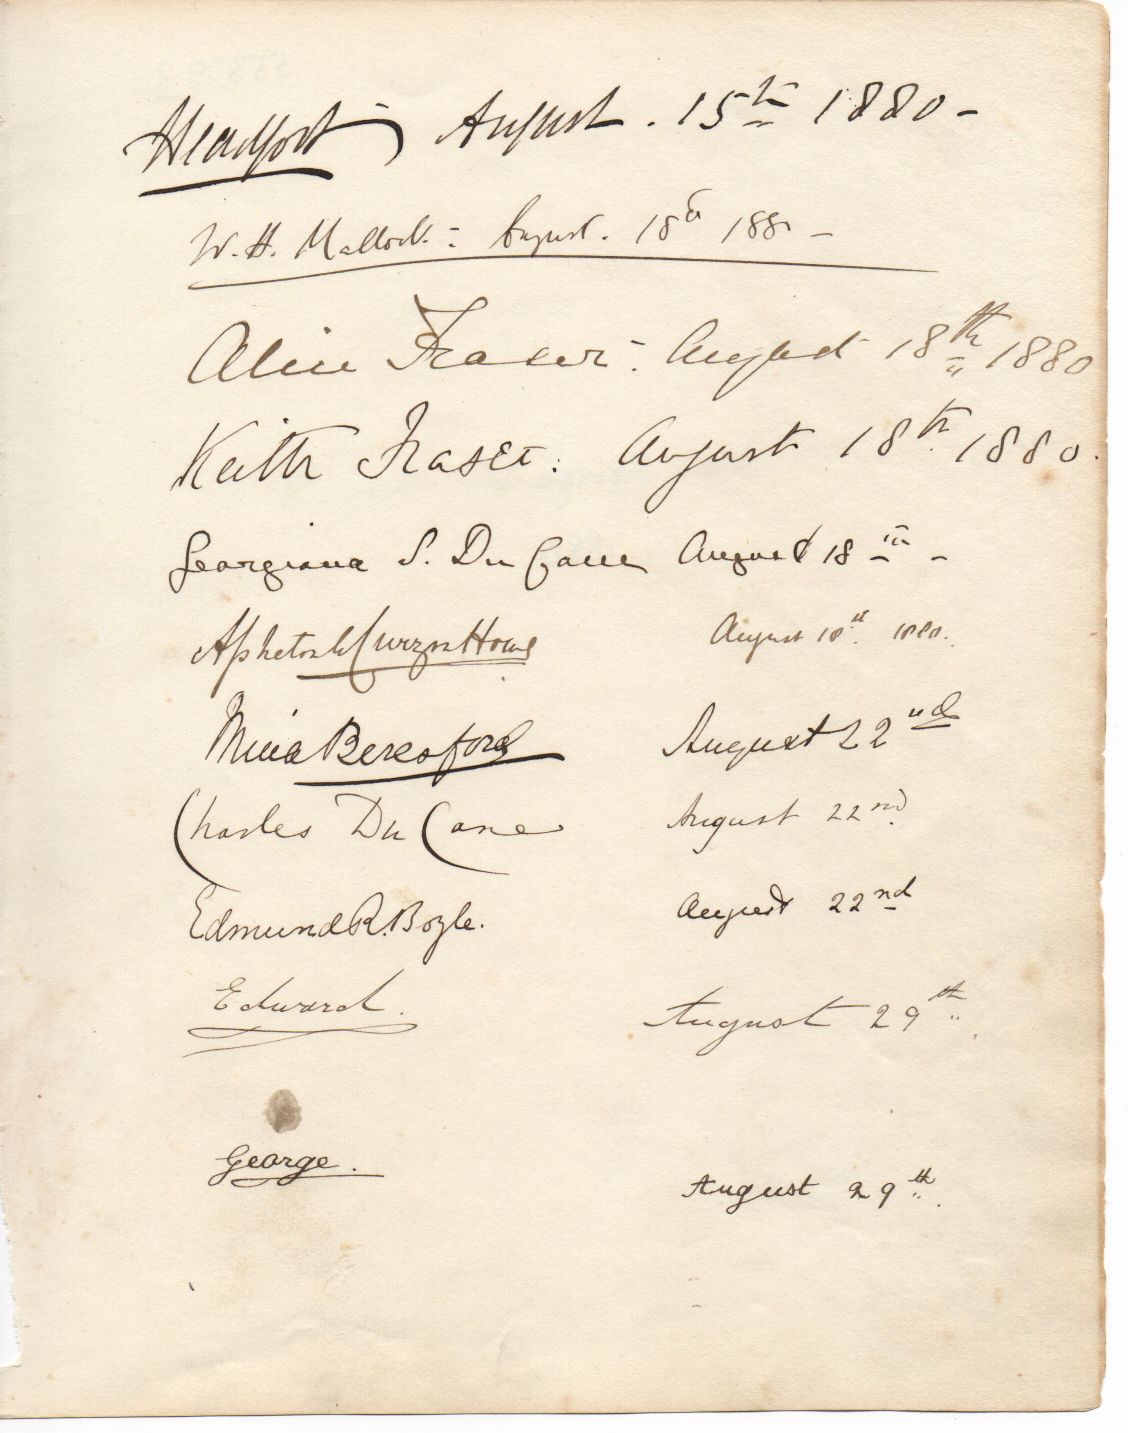 Headfort August. 15th 1880 -
W. H. Mallock - August. 18th 1880 -
Alice Fraser - August 18th 1880
Keith Fraser. August 18th 1880.
Georgiana S. Du Cane August 18th -
Curzon Howe August 18th 1880.
Mina Beresford August 22nd
Charles Du Cane August 22nd
Edmund R. Boyle. August 22nd
Edward. August 29th
George. August 29th